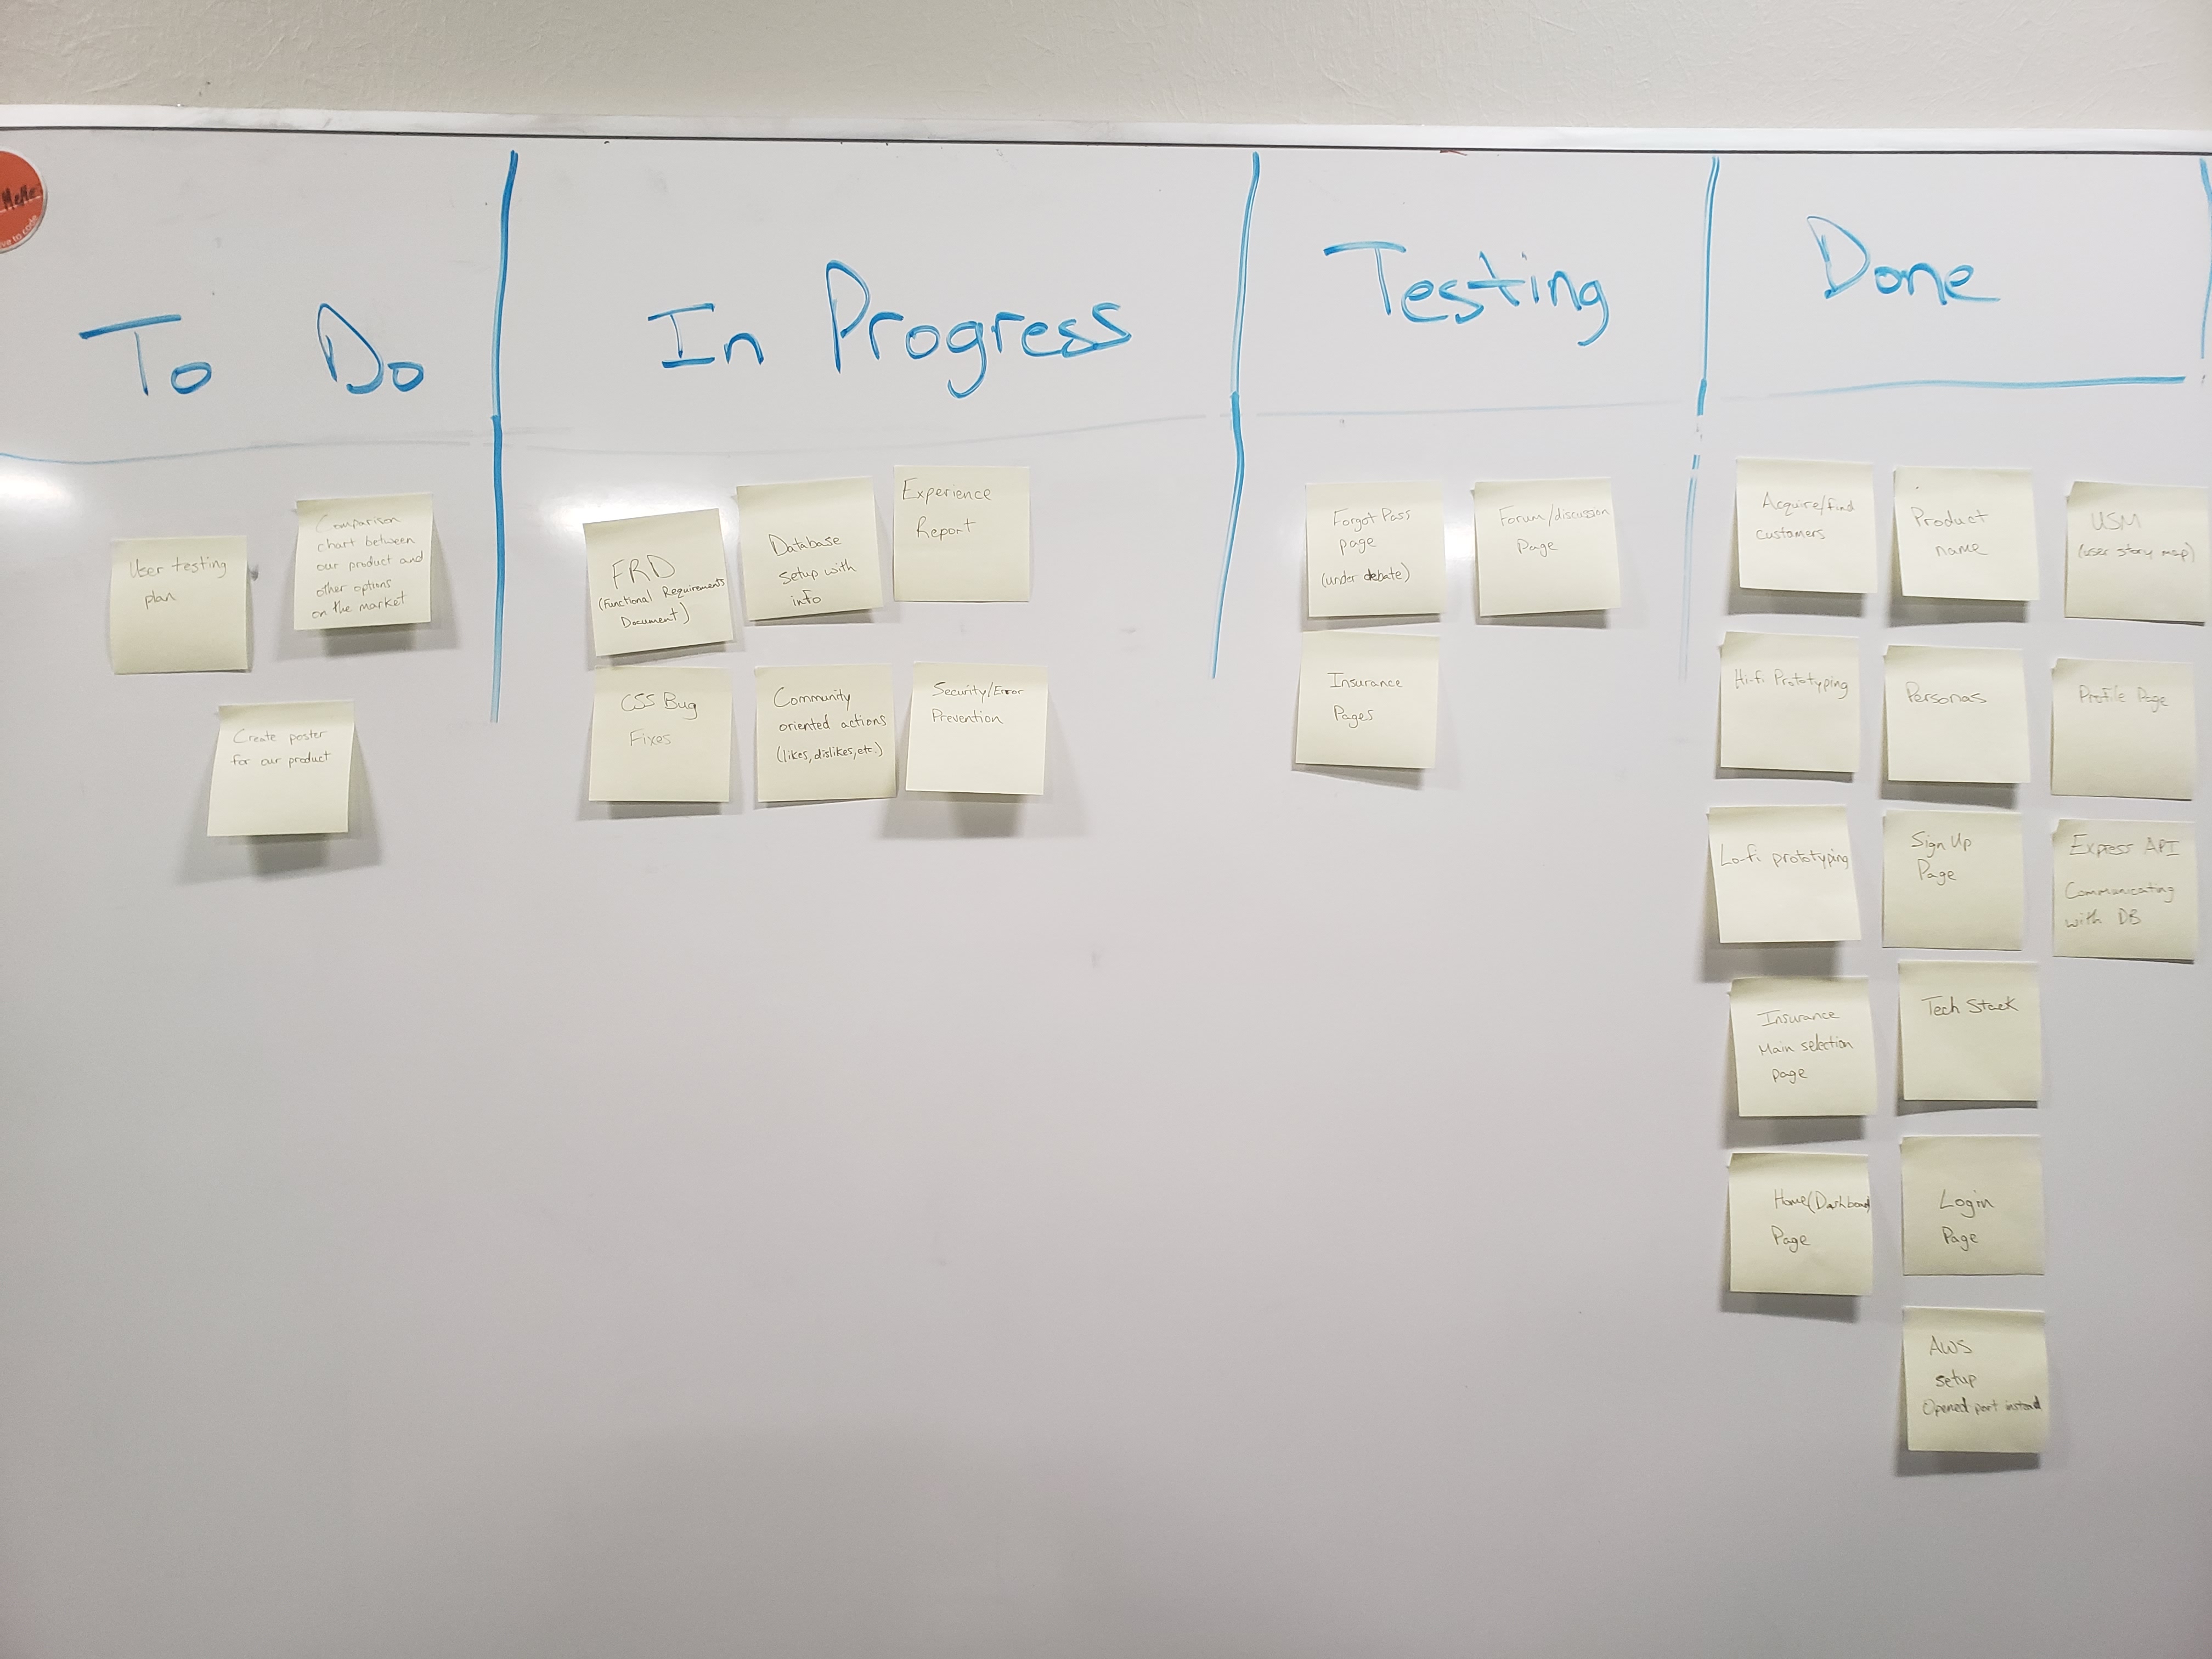 MeMe
ive to code
To Do
In Progress
Testing
Done
User testing
plan
Comparison
chart between
our product and
other options
on the market
Create poster
for our product
FRD
(Functional Requirements
Document)
Database
setup with
info
Experience
Report
CSS Bug
Fixes
Community
oriented actions
(likes, dislikes, etc.)
Security/Error
Prevention
Forgot Pass
page
(under debate)
Forum/discussion
Page
Insurance
Pages
Acquire/find
customers
Product
name
USM
(user story map)
Hi-fi Prototyping
Personas
Profile Page
Lo-fi prototyping
Sign Up
Page
Express API
Communicating
with DB
Insurance
Main selection
page
Tech Stack
Home(Dashboard)
Page
Login
Page
AWS
setup
Opened port instead